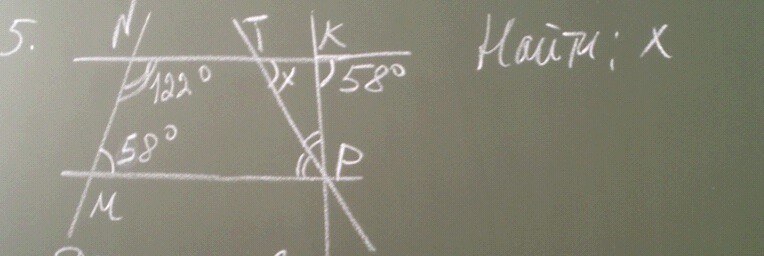 5.
N T K
122° x 58°
58° P
M
Найти: x